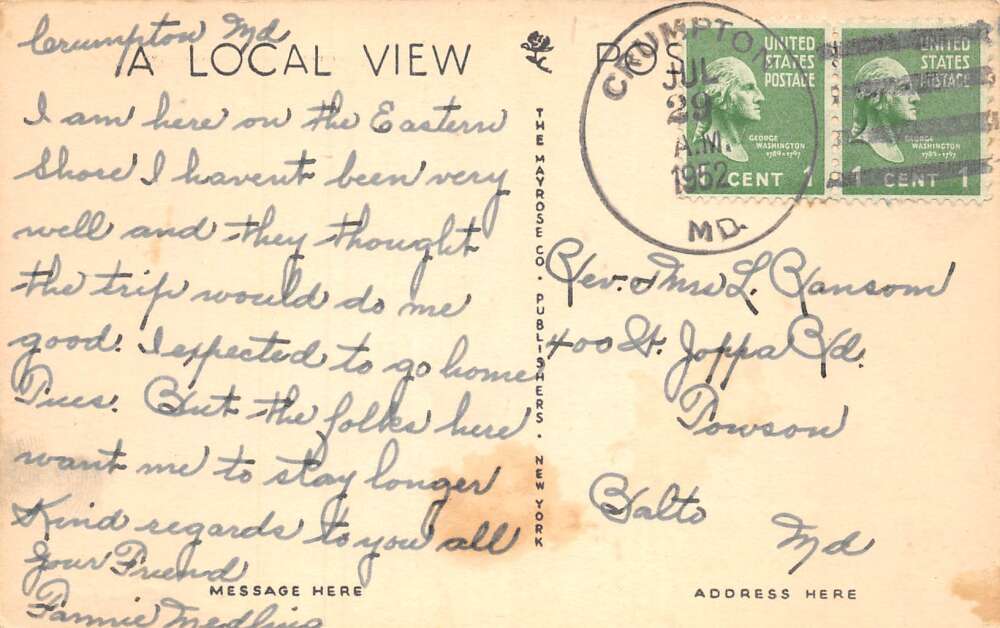 Crumpton Md
A LOCAL VIEW
I am here on the Eastern
Shore I havent been very
well and they thought
the trip would do me
good. I expected to go home
Tues. But the folks here
want me to stay longer
Kind regards to you all
Your Friend
Fannie Medling
MESSAGE HERE
THE MAYROSE CO. PUBLISHERS. NEW YORK
POS
CRUMPTON
JUL
29
A.M.
1952
MD.
UNITED
STATES
POSTAGE
GEORGE
WASHINGTON
1789-1797
CENT 1
UNITED
STATES
POSTAGE
GEORGE
WASHINGTON
1789-1797
1 CENT 1
Rev. & Mrs L. Ransom
400 St. Joppa Rd.
Towson
Balto
Md
ADDRESS HERE